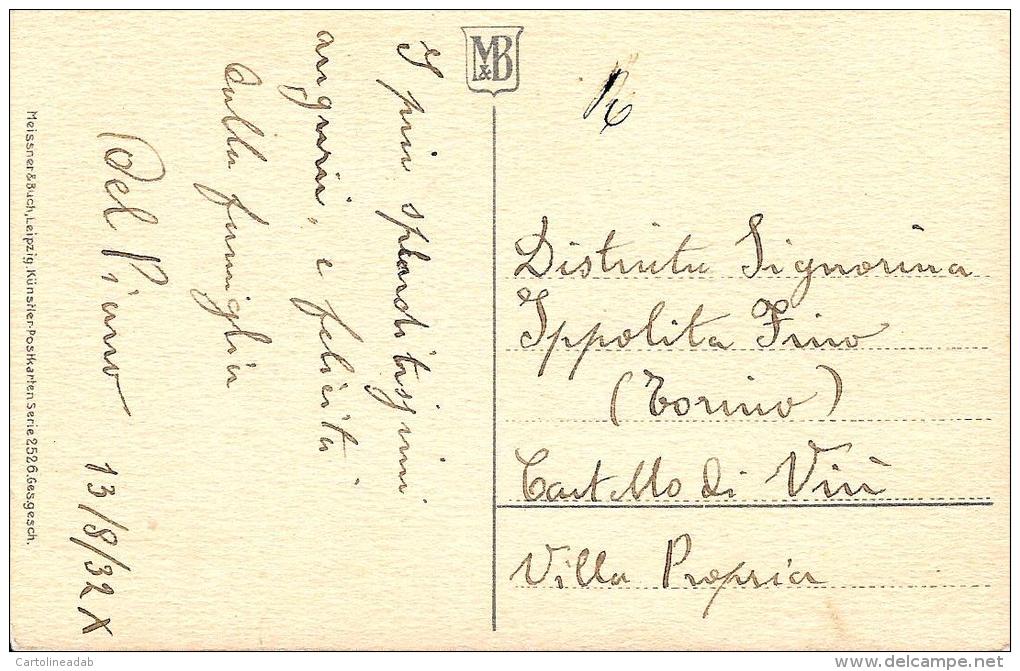 M&B
I più splendidissimi
auguri, e felicità
dalla famiglia
Del Piano
13/8/32 X
Meissner & Buch, Leipzig. Künstler-Postkarten Serie 2526. Ges. gesch.
Distinta Signorina
Ippolita Fino
(Torino)
Castello di Viù
Villa Propria
Cartolineadab
http://www.delcampe.net